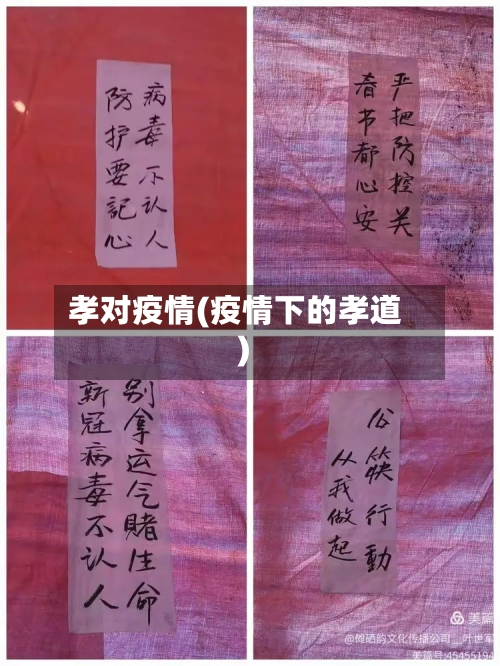 病毒不认人
防护要記心
严把防控关
看书都心安
孝对疫情(疫情下的孝道
)
别拿运气賭生命
新冠病毒不认人
公筷行動
从我做起
美篇
@傩硒韵文化传播公司__叶世军
美篇号:45455194